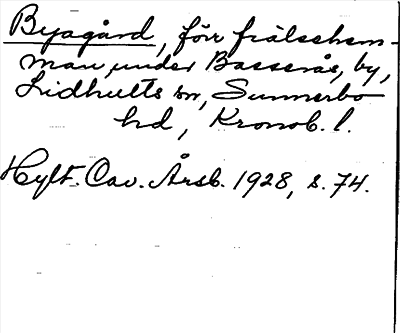 Byagård, förr frälsehem-
man under Bassarås, by,
Lidhults sn, Sunnerbo
hd, Kronob. l.
Hylt. Cav. Årsb. 1928, s. 74.